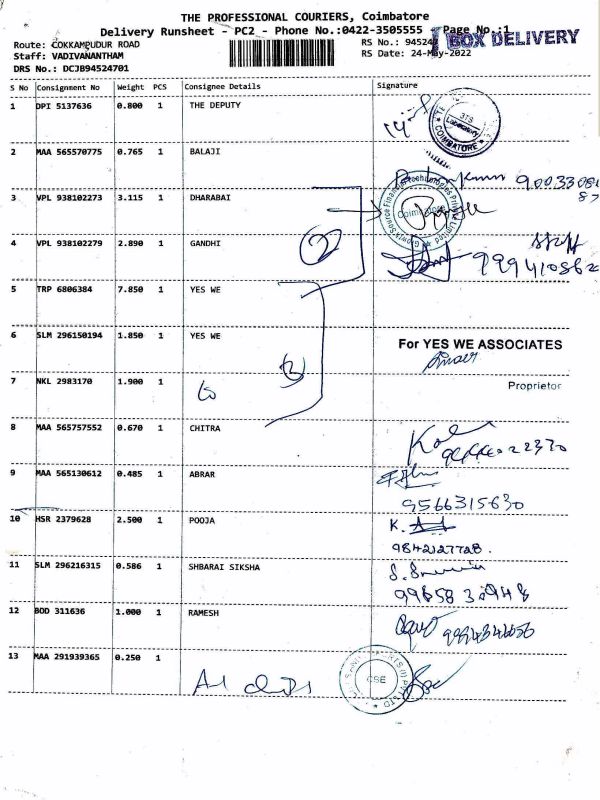 THE PROFESSIONAL COURIERS, Coimbatore
Delivery Runsheet - PC2 - Phone No.:0422-3505555 Page No.:1
BOX DELIVERY
Route: COKKAMPUDUR ROAD
RS No.: 94524
Staff: VADIVANANTHAM
RS Date: 24-May-2022
DRS No.: DCJB94524701
S No Consignment No Weight PCS Consignee Details Signature
1 DPI 5137636 0.800 1 THE DEPUTY
COIMBATORE
2 MAA 565570775 0.765 1 BALAJI
3 VPL 938102273 3.115 1 DHARABAI
4 VPL 938102279 2.890 1 GANDHI
Staff
5 TRP 6806384 7.850 1 YES WE
6 SLM 296150194 1.850 1 YES WE
For YES WE ASSOCIATES
7 NKL 2983170 1.900 1
Proprietor
8 MAA 565757552 0.670 1 CHITRA
9 MAA 565130612 0.485 1 ABRAR
9566315630
10 HSR 2379628 2.500 1 POOJA
K.
9842127728.
11 SLM 296216315 0.586 1 SHBARAI SIKSHA
12 BOD 311636 1.000 1 RAMESH
13 MAA 291939365 0.250 1
CSE